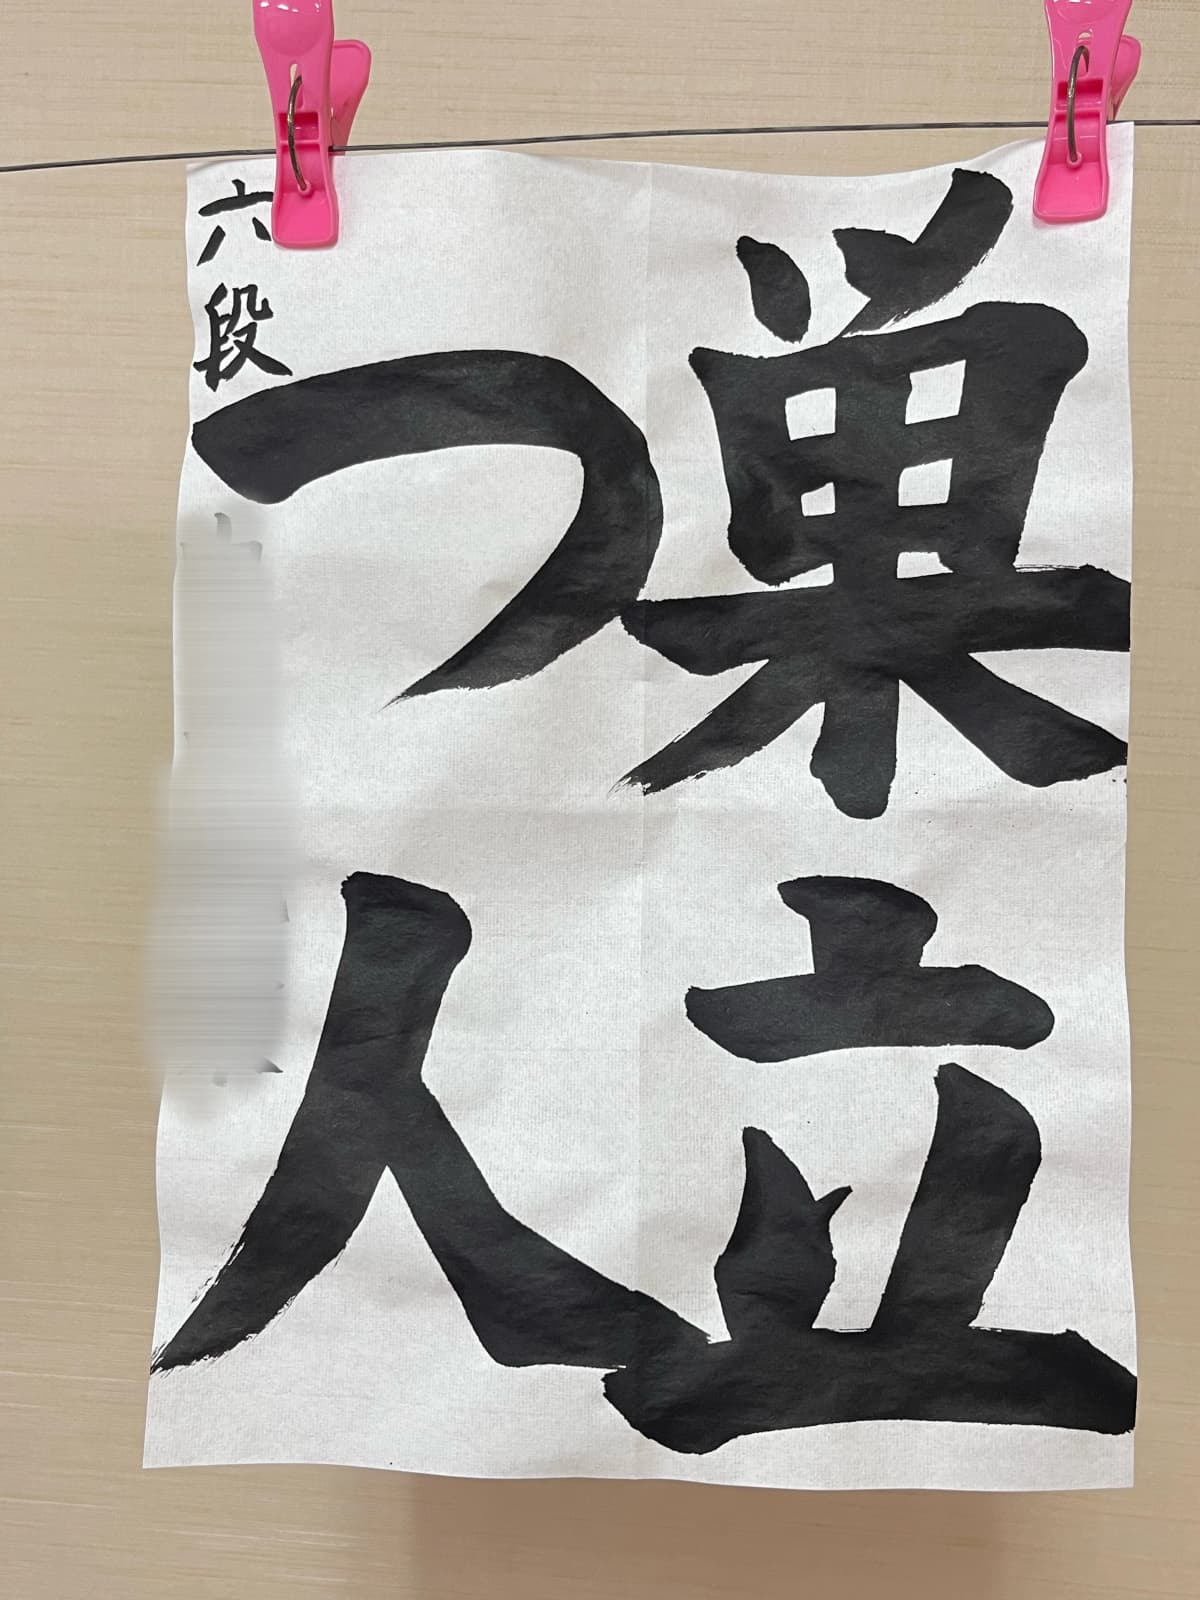 巣立
つ人
六段